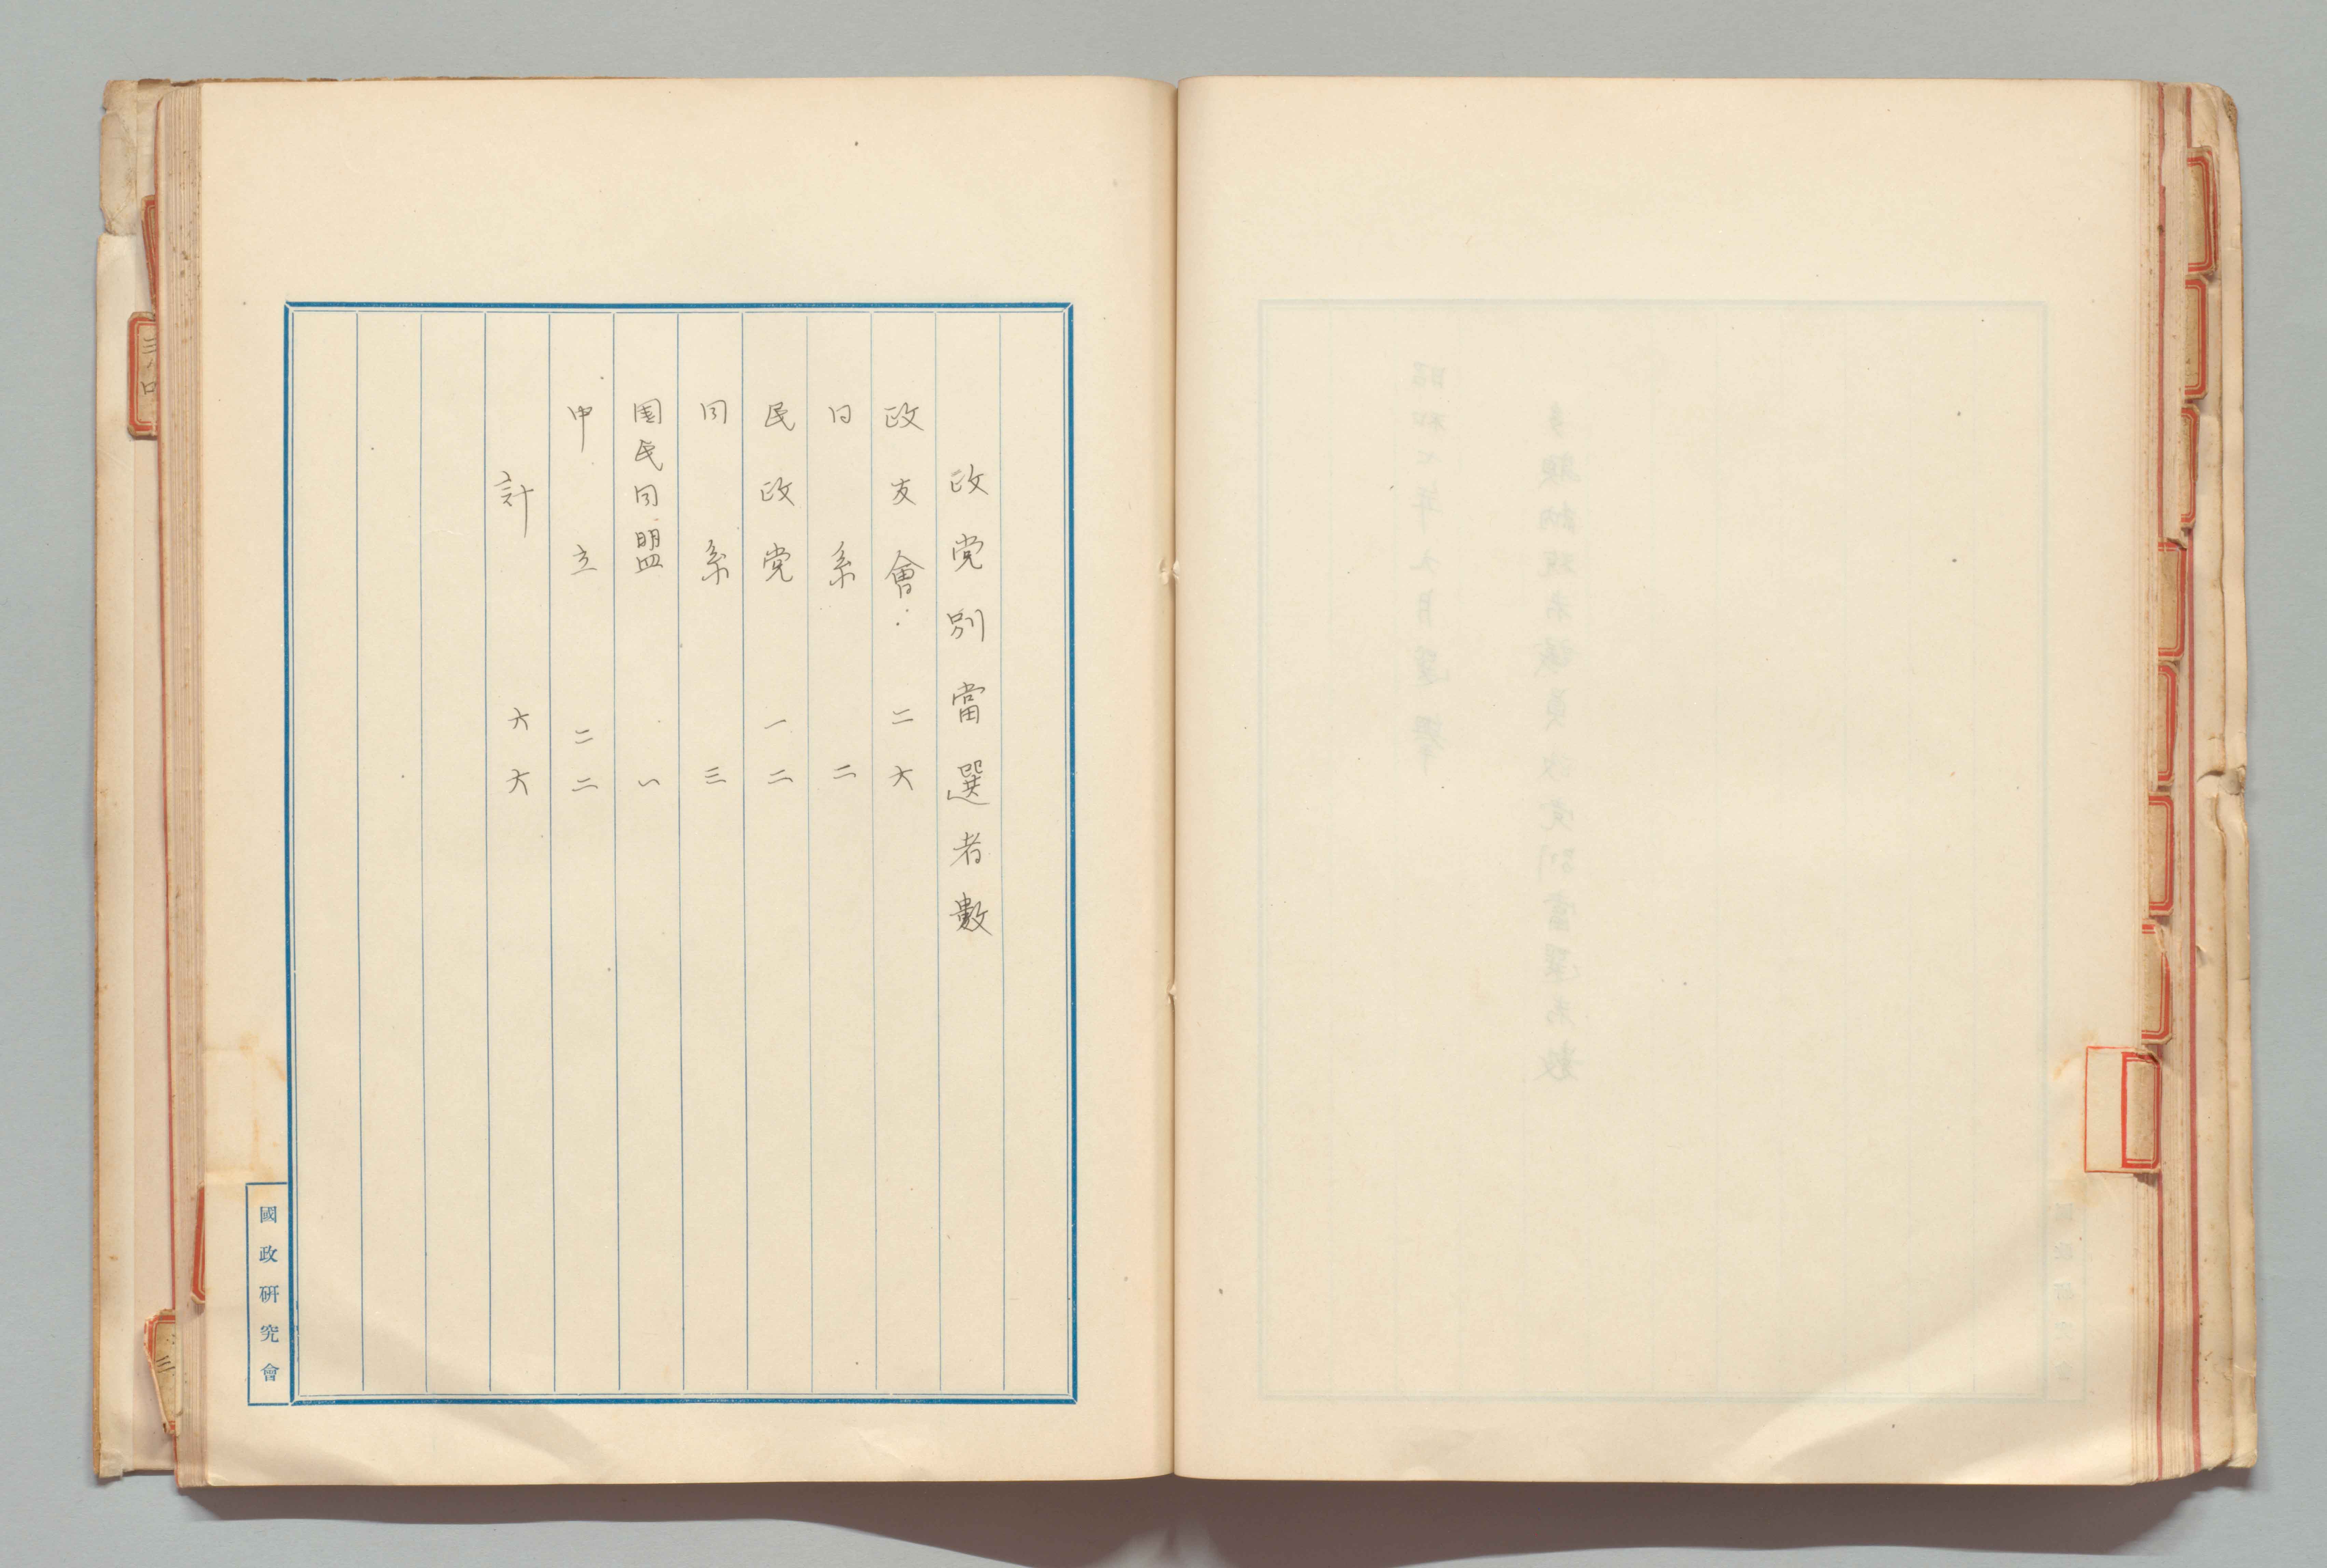 政党別當選者數
政友會 二六
同系 二
民政党 一二
同系 三
國民同盟 一
中立 二二
計 六六
國政硏究會